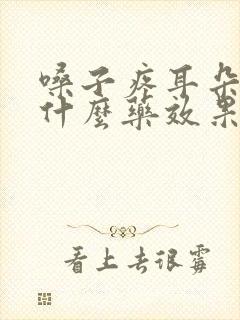 嗓子疼耳朵
什麼藥效果
看上去很霉